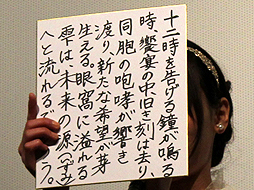 十二時を告げる鐘が鳴る
時、饗宴の中旧き刻は去り、
同胞の咆哮が響き
渡り、新たな希望が芽
生える。眼窩に溢れる
雫は未来の源
へと流れるで う。